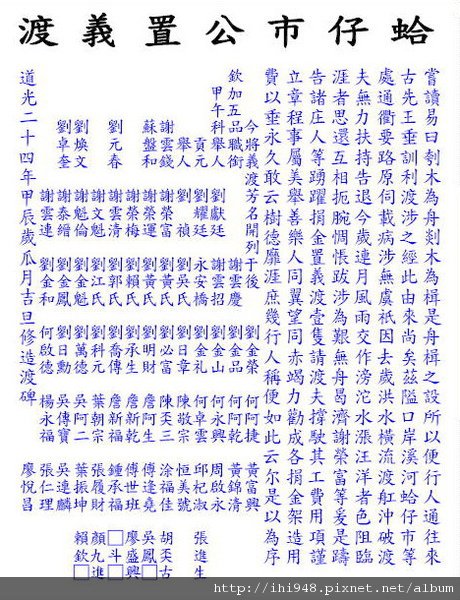 蛤仔市公置義渡
嘗讀易曰刳木為舟剡木為楫是舟楫之設所以便行人通往來
古先王垂訓利渡涉之經此由來尚矣茲隘口岸溪河蛤仔市等
處通衢要路原伺載病涉無虞祇因去歲洪水橫流渡舡沖破渡
夫無力扶持告退今歲連月風雨交作滂沱水漲汪洋者色阻臨
涯者思還互相扼腕惆悵跋涉為艱無舟曷濟謝榮富等爰是躊
告諸庄人等踴躍捐金置義渡壹隻請渡夫撐駛其工費用項謹
立章程事屬美舉善樂人同翼望同赤竭力勸成各捐金架造用
費以垂永久敢云樹德靡涯庶幾行人稱便如此云尔是以為序
今將義渡芳名開列于後 劉金榮 何阿捷 黃富興
欽加五品職銜 謝雲慶 劉金品 何阿乾 黃錦清
甲午科舉人 劉獻廷 謝雲招 劉金山 何永興 周啟永
貢元 劉耀廷 永安橋 劉金禮 何卓雲 邱杞淑 張進生
舉人 劉禎 劉吳氏 劉日章 陳敬宗 恒美號
謝雲錢 謝榮富 劉黃氏 劉必富 陳奕三 涂福佳 胡奀古
蘇盤和 謝榮運 劉黃氏 劉明財 詹阿生 傅逢堯 吳鳳□
謝榮梅 劉賴氏 劉承生 詹新乾 傅世班 廖盛興
劉元春 謝雲清 劉郭氏 劉喬傳 詹新福 鍾承福 □斗□
謝文魁 劉江氏 劉科元 葉朝宗 張履財 顏九進
劉煥文 謝魁倫 劉金魁 劉萬德 吳阿二 黃振坤 賴欽□
劉卓奎 謝泰縉 劉金鳳 劉日勳 吳傳寶 吳連麟
謝雲連 劉金和 何啟德 楊永福 張仁理
道光二十四年甲辰歲瓜月吉旦修造渡碑 廖悅昌
http://ihi948.pixnet.net/album